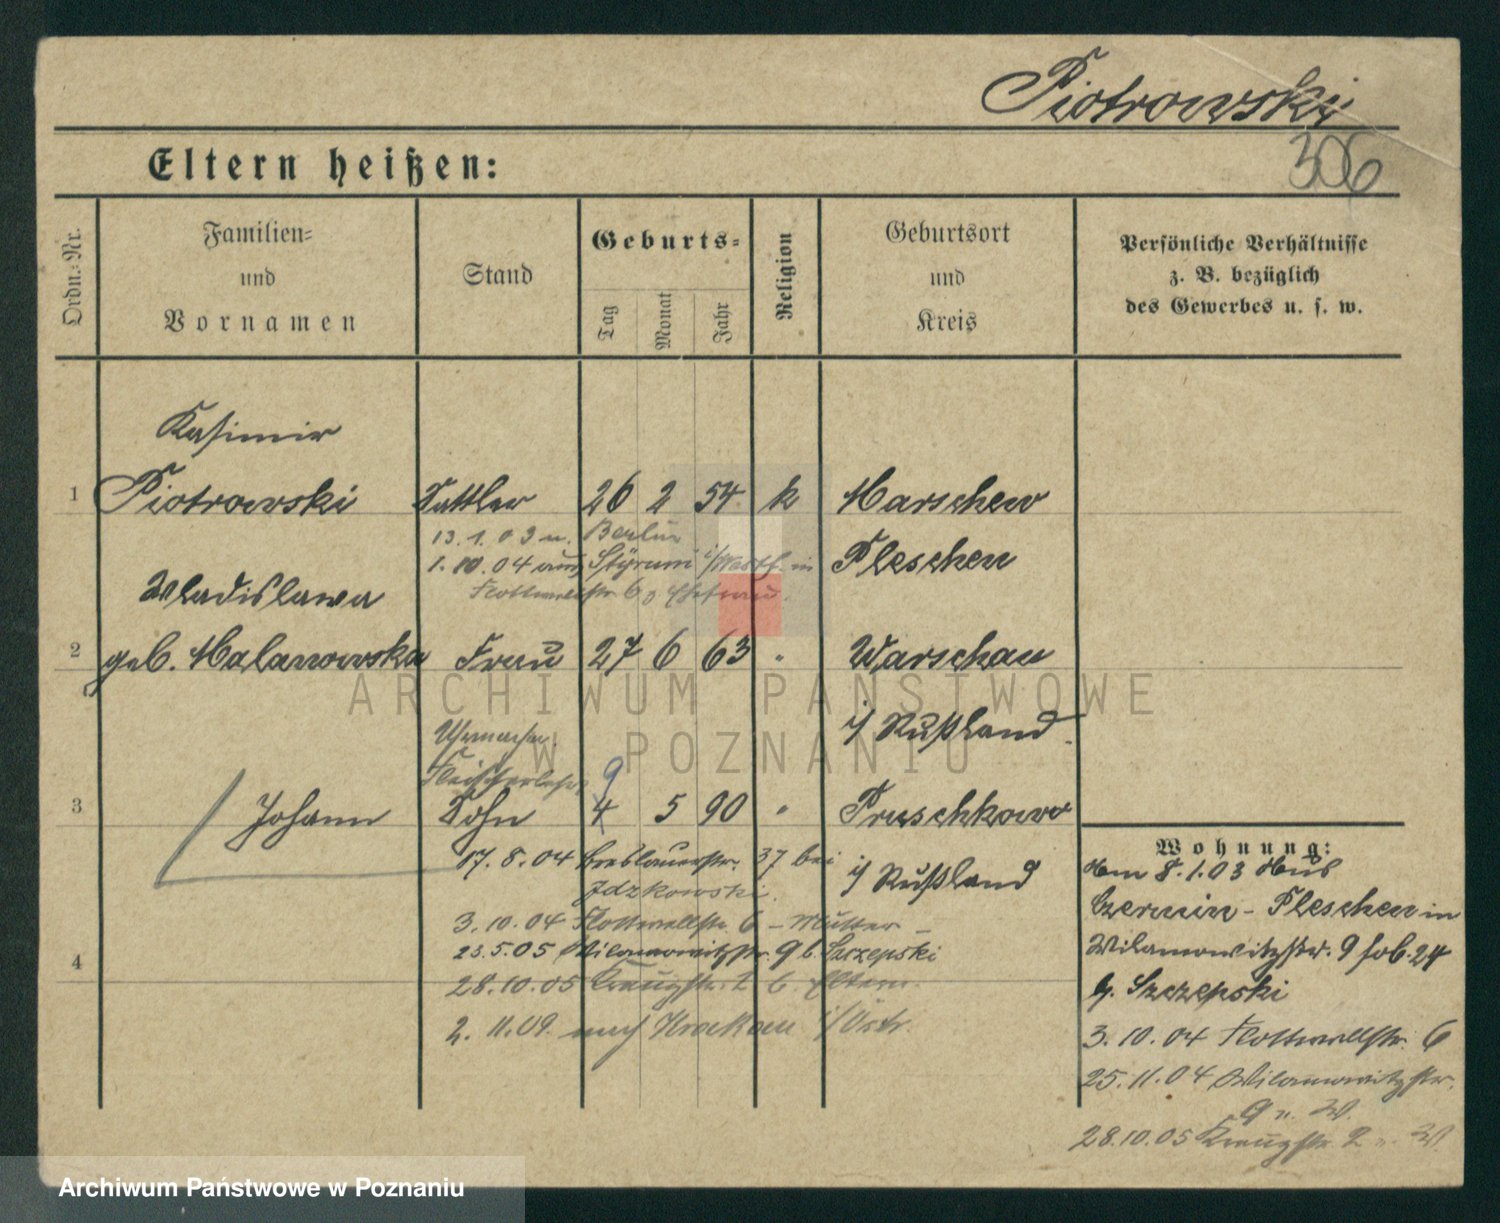 Piotrowski
306
Eltern heißen:
Ordn.-Nr.
Familien-
und
Vornamen
Stand
Geburts-
Tag
Monat
Jahr
Religion
Geburtsort
und
Kreis
Persönliche Verhältnisse
z. B. bezüglich
des Gewerbes u. s. w.
Kasimir
1 Piotrowski Sattler 26 2 54 k Marschew
13.1.03 n. Berlin
Pleschen
1.10.04 aus Styrum i/Westf. in
Flottwellstr. 6 z Ehefrau.
Wladislawa
2 geb. Malanowska Frau 27 6 63 " Warschau
i/ Rußland.
Uhrmacher
Fleischerlehrl.
9
3 Johann Sohn 4 5 90 " Pruschkowo
i/ Rußland
17.8.04 Breslauerstr. 37 bei
Idzkowski.
3.10.04 Flottwellstr. 6 - Mutter -
23.5.05 Wilamowitzstr. 9 b. Szczepski
4
28.10.05 Kreuzstr. 2 b. Eltern.
2.11.09. nach Krakau i/Östr.
Wohnung:
8.1.03
Czermin - Pleschen in
Wilamowitzstr. 9 24
b. Szczepski
3.10.04 Flottwellstr. 6
25.11.04 Wilamowitzstr.
9 n. W.
28.10.05 Kreuzstr. 2 n. W.
ARCHIWUM PAŃSTWOWE
W POZNANIU
Archiwum Państwowe w Poznaniu